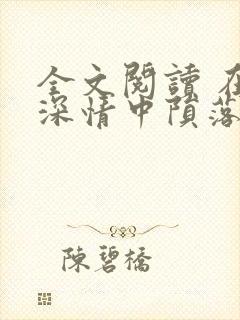 全文閱讀 在
深情中隕落
陳碧橋